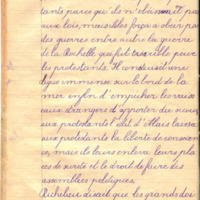 tants parce qu'ils n'obéissait pas
aux lois, mais les força a obéir par
des guerres entre autre la guerre
de la Rochelle qui fut terrible pour
les protestants. Il construisit une
digue immense sur le bord de la
mer afin d'empêcher les vaisse
aux étrangers d'apporter des vivres
aux protestants l'édit d'Alais laissa
aux protestants la liberté de conscien
ce, mais de leurs enleva leurs pla
ces de sureté et le droit de faire des
assemblées politiques.
Richelieu disait que les grands de